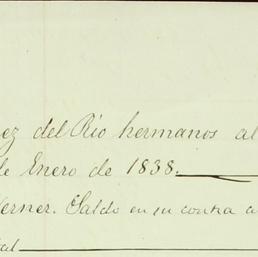 ez del Rio hermanos al
de Enero de 1838.
erner. Saldo en su contra a
tal